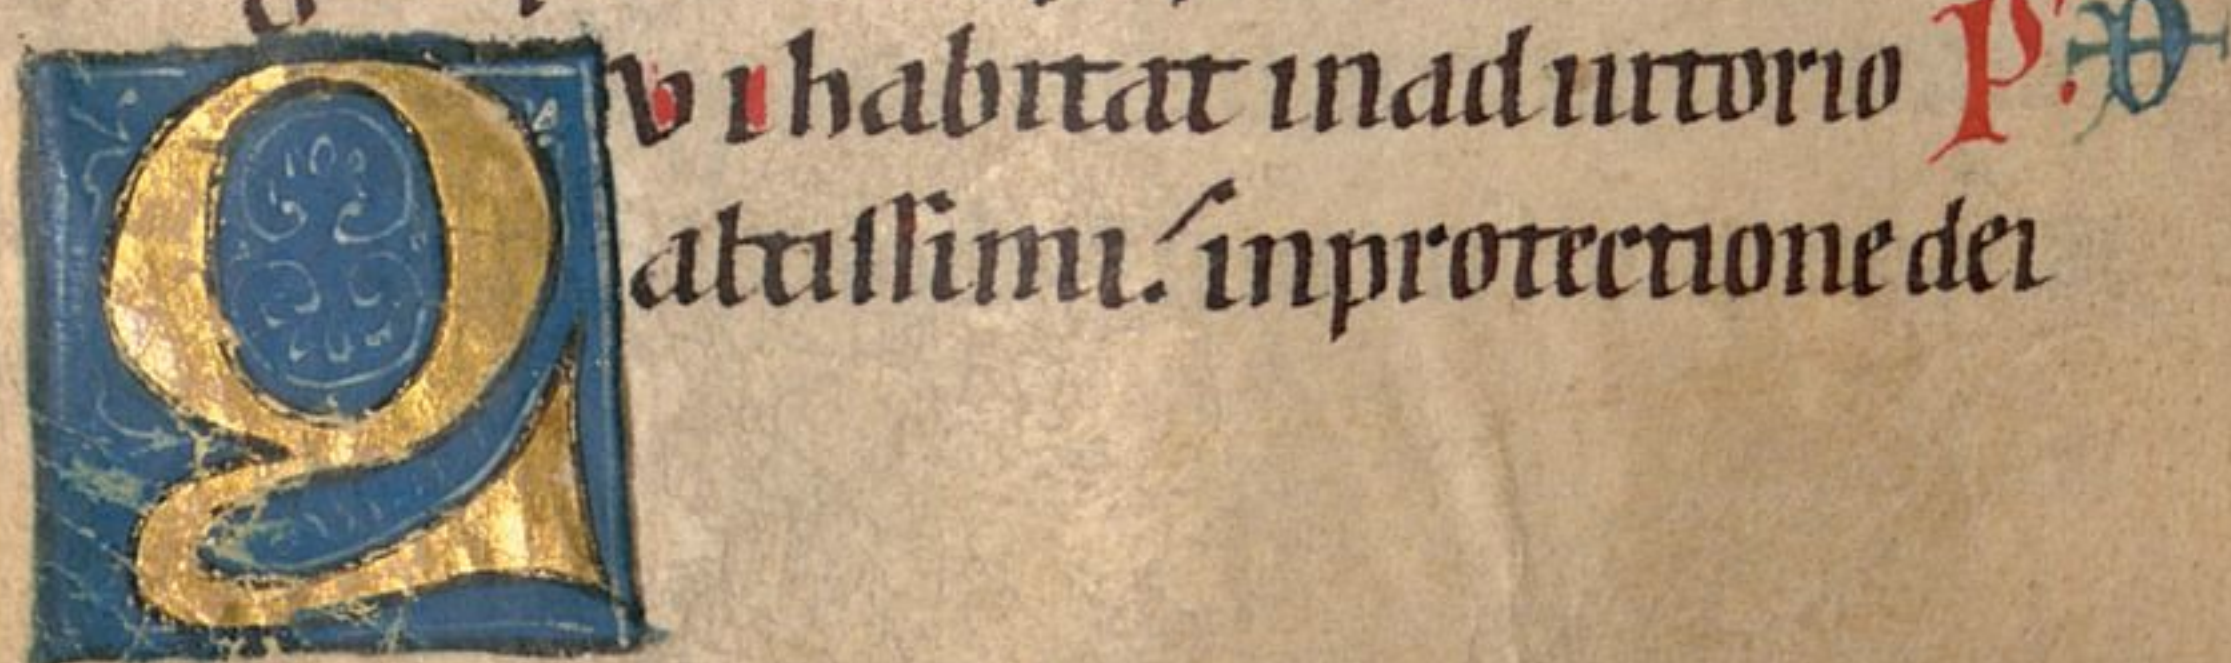 QVI habitat in adiutorio P. D
altissimi. in protectione dei